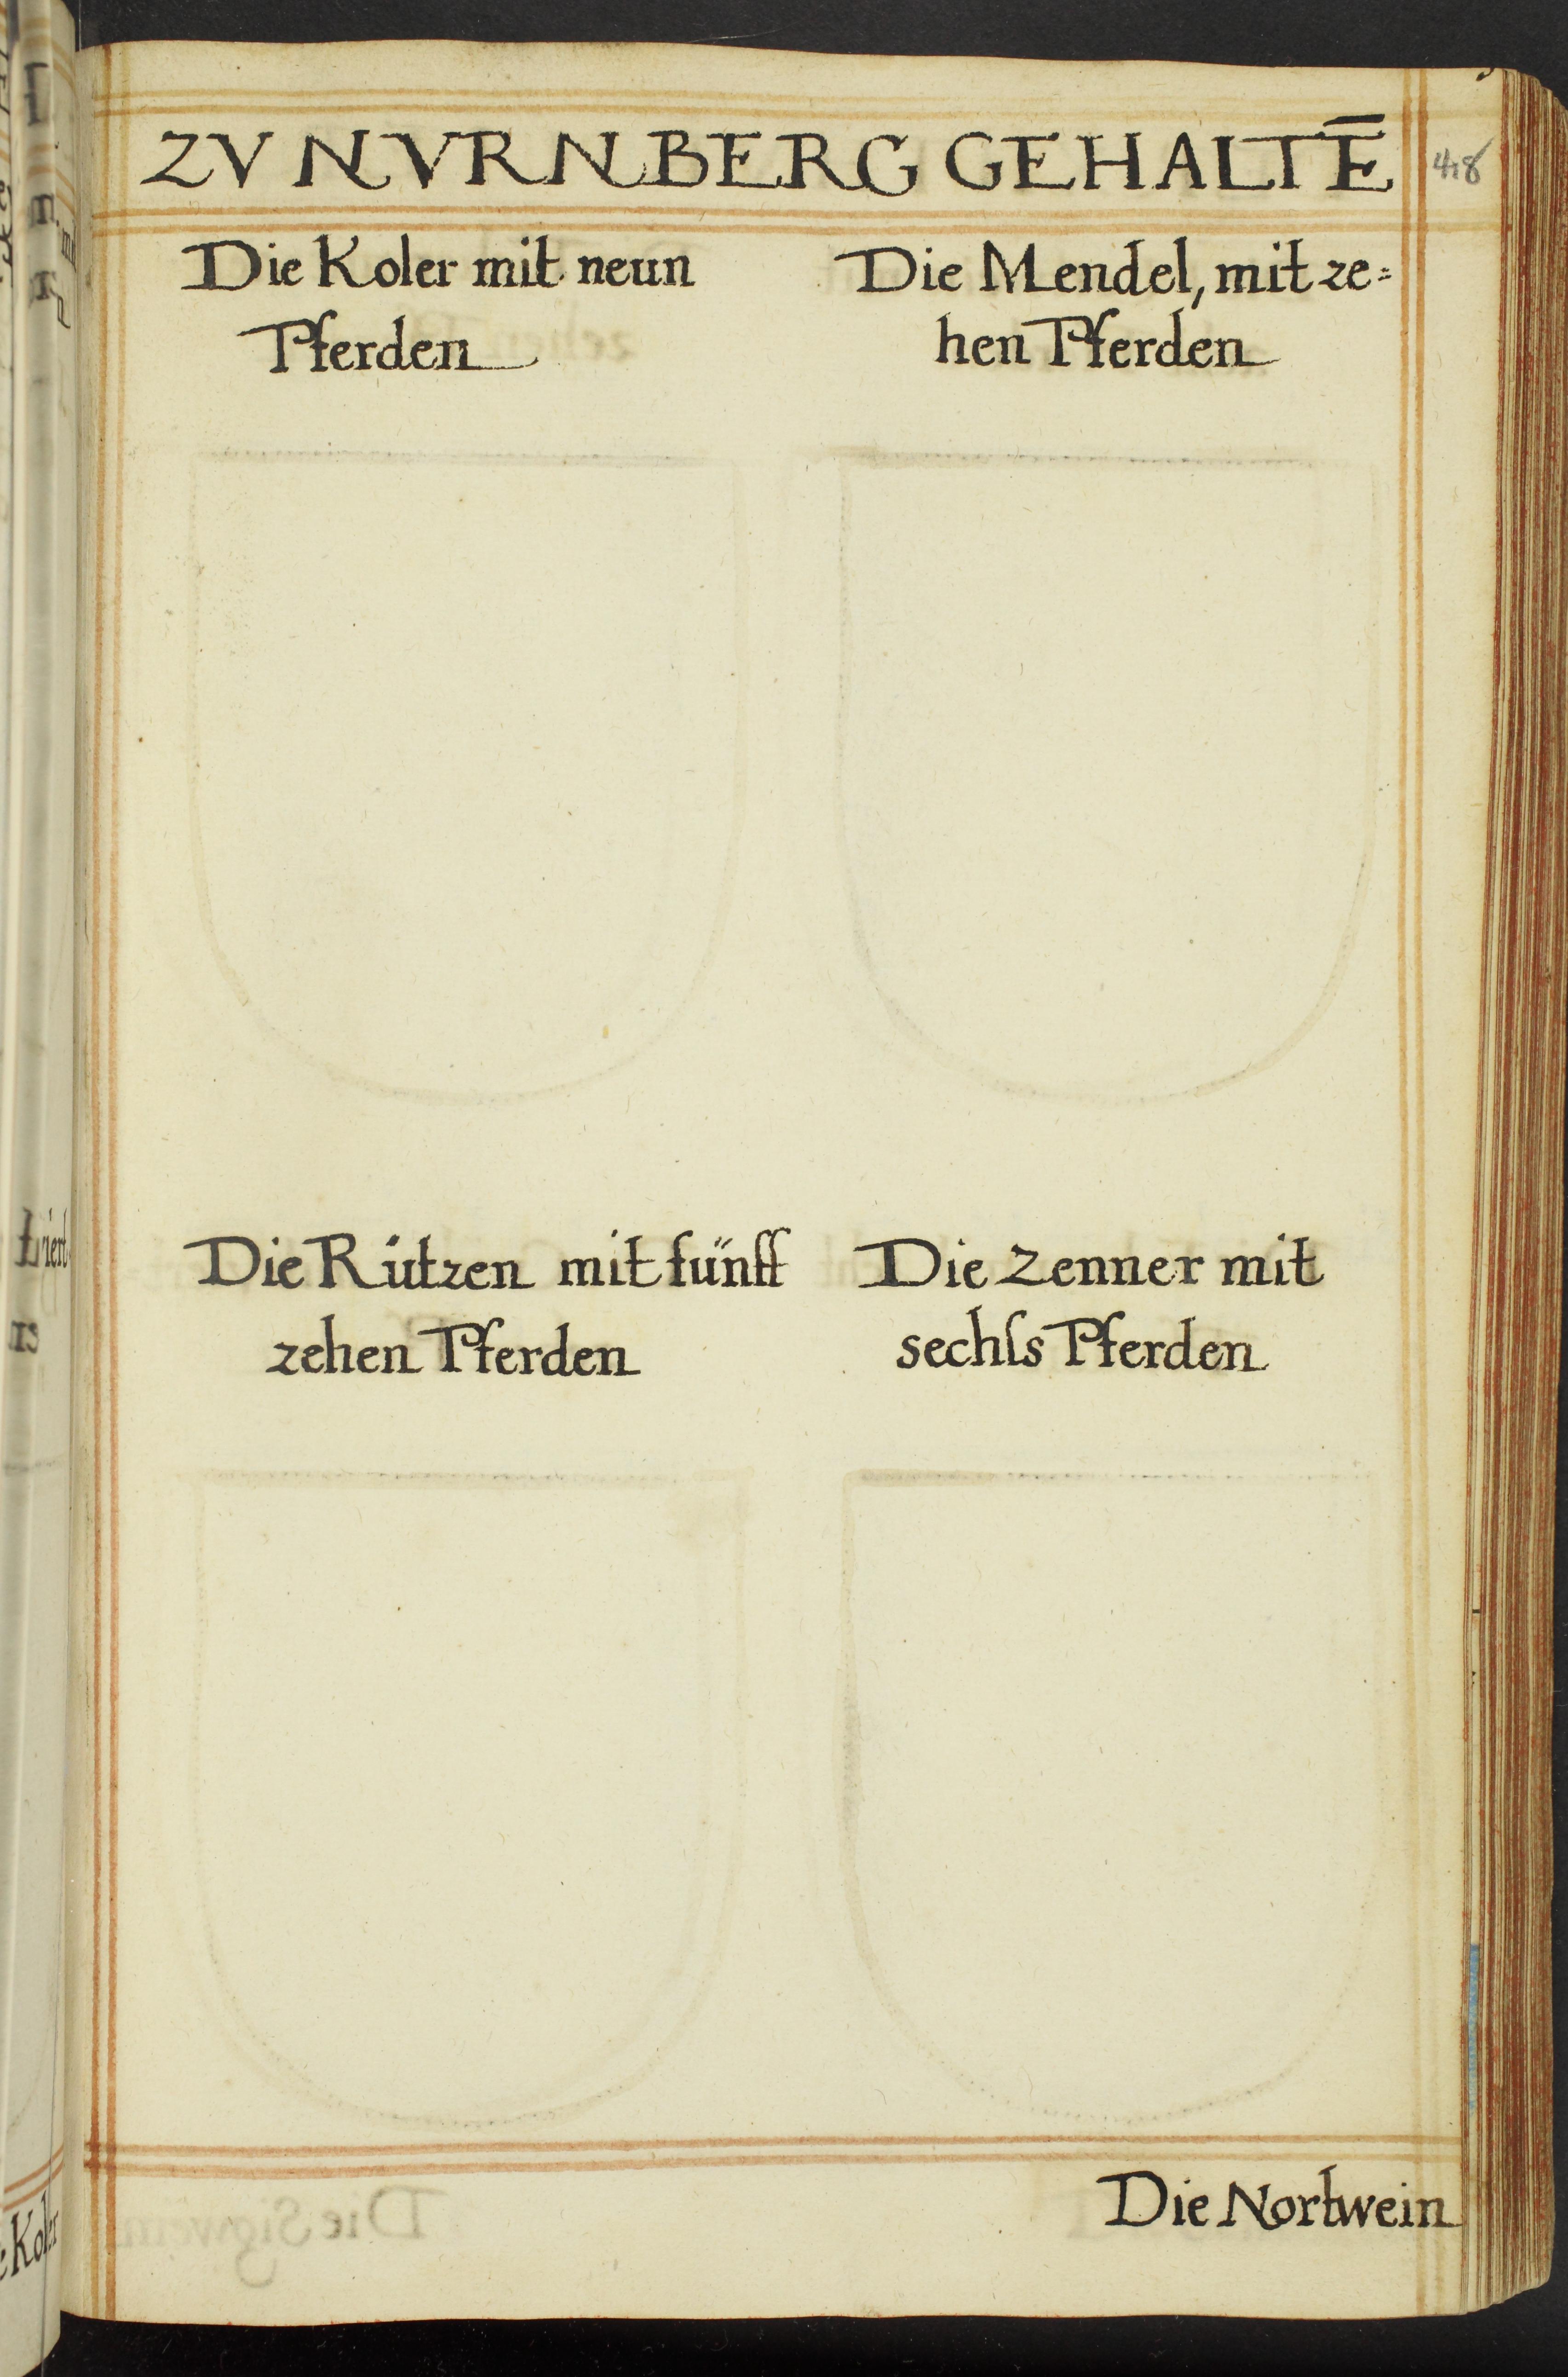 ZV NVRNBERG GEHALTĒ
48
Die Koler mit neun
Pferden
Die Mendel, mit ze=
hen Pferden
Die Rützen mit fünff
zehen Pferden
Die Zenner mit
sechſs Pferden
Die Nortwein